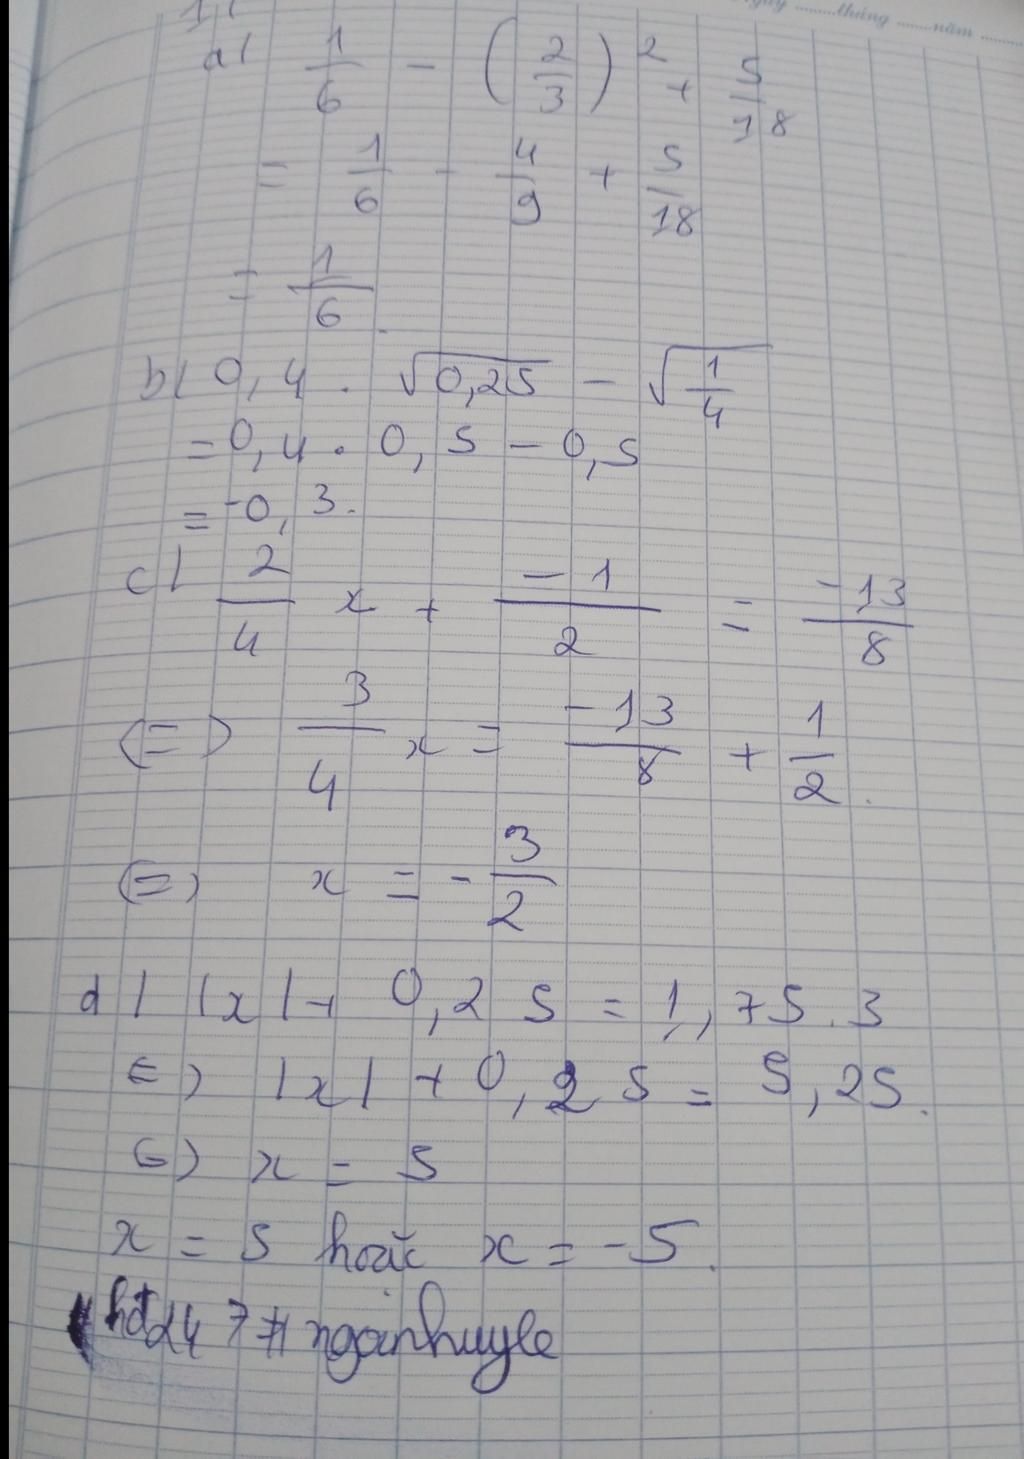 Ngày ........tháng ......năm ......
1,
a/ 1/6 - (2/3)² + 5/18
= 1/6 - 4/9 + 5/18
= 1/6.
b/ 0,4 . √0,25 - √1/4
= 0,4 . 0,5 - 0,5
= -0,3.
c/ 2/4 x + -1/2 = -13/8
<=> 3/4 x = -13/8 + 1/2.
<=> x = -3/2
d/ |x| + 0,25 = 1,75.3
<=> |x| + 0,25 = 5,25.
<=> x = 5
x = 5 hoặc x = -5.
hd247 #